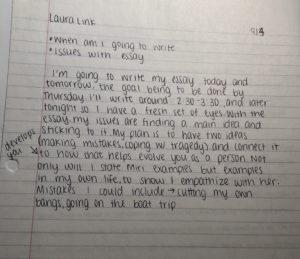 Laura Link
9/4
•when am I going to write
•issues with essay
I'm going to write my essay today and
tomorrow, the goal being to be done by
Thursday. I'll write around 2:30-3:30, and later
tonight so I have a fresh set of eyes with the
essay. my issues are finding a main idea and
sticking to it. My plan is to have two ideas
(making mistakes, coping w/ tragedy) and connect it
develops you → to how that helps evolve you as a person. Not
only will I state Miri examples but examples
in my own life, to show I empathize with her.
Mistakes I could include → cutting my own
bangs, going on the boat trip